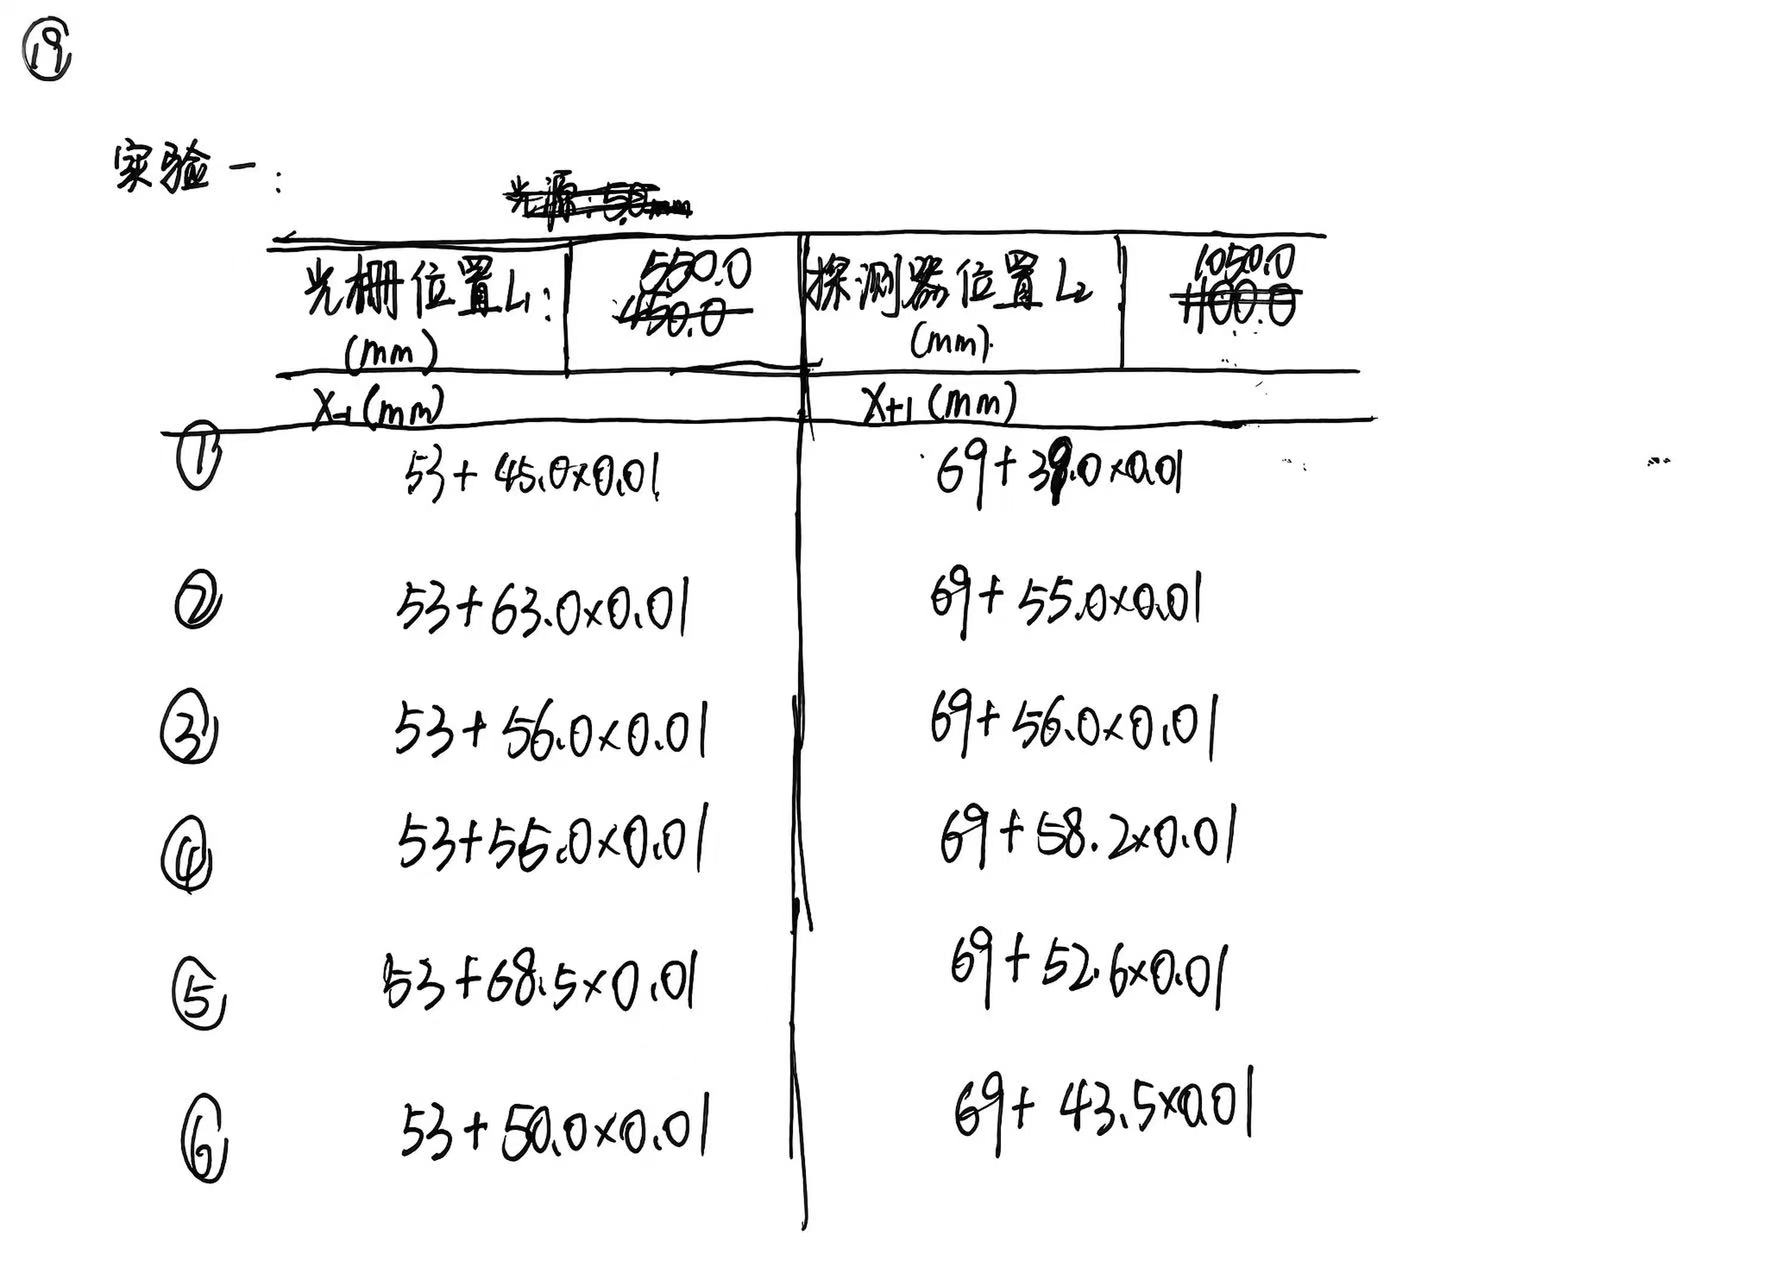 19
实验一:
光源:50mm
光栅位置L1: 550.0 探测器位置L2 1050.0
(mm) 450.0 (mm). 1100.0
X-1(mm) X+1(mm)
① 53+45.0×0.01 69+39.0×0.01
② 53+63.0×0.01 69+55.0×0.01
③ 53+56.0×0.01 69+56.0×0.01
④ 53+55.0×0.01 69+58.2×0.01
⑤ 53+68.5×0.01 69+52.6×0.01
⑥ 53+50.0×0.01 69+43.5×0.01